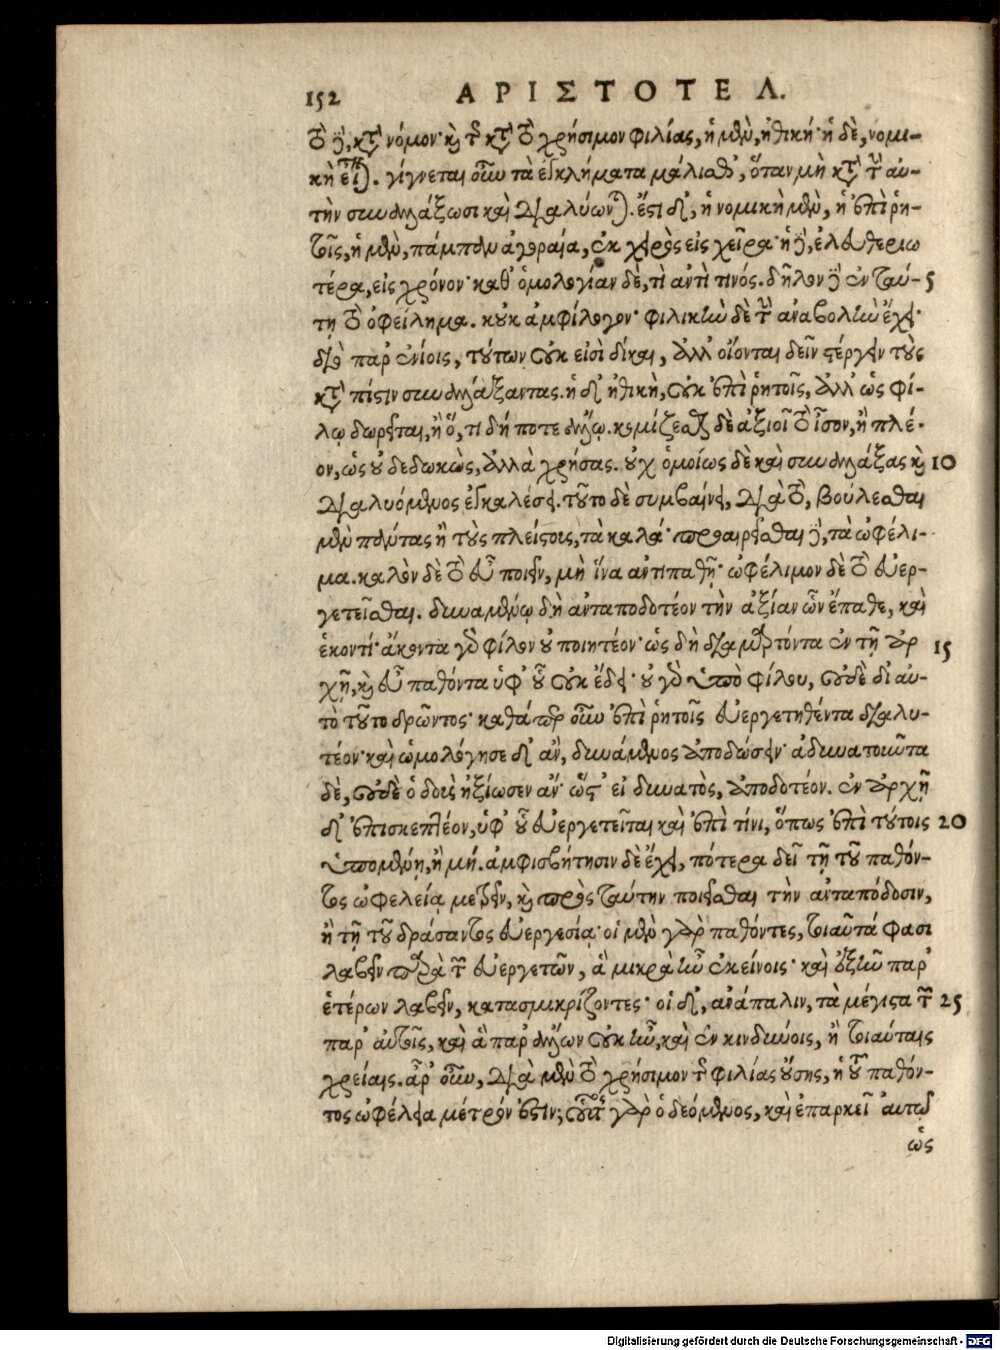 152 ΑΡΙΣΤΟΤΕΛ.
τὸ δὲ, κατὰ νόμον· καὶ τῆς κατὰ τὸ χρήσιμον φιλίας, ἡ μὲν, ἠθική· ἡ δὲ, νομι-
κὴ εἶναι. γίγνεται οὖν τὰ ἐγκλήματα μάλισθ', ὅταν μὴ κατὰ τὴν αὐ-
τὴν συναλλάξωσι καὶ διαλύωνται. ἔστι δ', ἡ νομικὴ μὲν, ἡ ἐπὶ ῥη-
τοῖς, ἡ μὲν, πάμπαν ἀγοραία, ἐκ χειρὸς εἰς χεῖρα· ἡ δὲ, ἐλευθεριω
τέρα, εἰς χρόνον· καθ' ὁμολογίαν δὲ, τὶ ἀντὶ τινός. δῆλον δὲ ἐν ταύ- 5
τῃ τὸ ὀφείλημα. κοὐκ ἀμφίλογον· φιλικὴν δὲ τὴν ἀναβολὴν ἔχει·
διὸ παρ' ἐνίοις, τούτων οὐκ εἰσὶ δίκαι, ἀλλ' οἴονται δεῖν στέργειν τοὺς
κατὰ πίστιν συναλλάξαντας. ἡ δ' ἠθικὴ, οὐκ ἐπὶ ῥητοῖς, ἀλλ' ὡς φί-
λῳ δωρεῖται, ἢ ὅ, τι δή ποτε ἄλλῳ. κομίζεσθαι δὲ ἀξιοῖ τὸ ἶσον, ἢ πλέ-
ον, ὡς οὐ δεδωκὼς, ἀλλὰ χρήσας. οὐχ ὁμοίως δὲ καὶ συναλλάξας καὶ 10
διαλυόμενος ἐγκαλέσει. τοῦτο δὲ συμβαίνει, διὰ τὸ, βούλεσθαι
μὲν πάντας ἢ τοὺς πλείστους, τὰ καλά· προαιρεῖσθαι δὲ, τὰ ὠφέλι-
μα. καλὸν δὲ τὸ εὖ ποιεῖν, μὴ ἵνα ἀντιπαθῇ· ὠφέλιμον δὲ τὸ εὐερ-
γετεῖσθαι. δυναμένῳ δὴ ἀνταποδοτέον τὴν ἀξίαν ὧν ἔπαθε, καὶ
ἑκοντί· ἄκοντα γὰρ φίλον οὐ ποιητέον· ὡς δὴ διαμαρτόντα ἐν τῇ ἀρ 15
χῇ, καὶ εὖ παθόντα ὑφ' οὗ οὐκ ἔδει· οὐ γὰρ ὑπὸ φίλου, οὐδὲ δι' αὐ-
τὸ τοῦτο δρῶντος· καθάπερ οὖν ἐπὶ ῥητοῖς εὐεργετηθέντα διαλυ-
τέον· καὶ ὡμολόγησε δ' ἂν, δυνάμενος ἀποδώσειν· ἀδυνατοῦντα
δὲ, οὐδὲ ὁ δοὺς ἠξίωσεν ἄν· ὥστ' εἰ δυνατὸς, ἀποδοτέον. ἐν ἀρχῇ
δ' ἐπισκεπτέον, ὑφ' οὗ εὐεργετεῖται καὶ ἐπὶ τίνι, ὅπως ἐπὶ τούτοις 20
ὑπομένῃ, ἢ μή. ἀμφισβήτησιν δὲ ἔχει, πότερα δεῖ τῇ τοῦ παθόν-
τος ὠφελείᾳ μετρεῖν, καὶ πρὸς ταύτην ποιεῖσθαι τὴν ἀνταπόδοσιν,
ἢ τῇ τοῦ δράσαντος εὐεργεσίᾳ· οἱ μὲν γὰρ παθόντες, τοιαῦτά φασι
λαβεῖν παρὰ τῶν εὐεργετῶν, ἃ μικρὰ ἦν ἐκείνοις· καὶ ἐξῆν παρ'
ἑτέρων λαβεῖν, κατασμικρίζοντες· οἱ δ', ἀνάπαλιν, τὰ μέγιστα τῶν 25
παρ' αὐτοῖς, καὶ ἃ παρ' ἄλλων οὐκ ἦν, καὶ ἐν κινδύνοις, ἢ τοιαύταις
χρείαις. ἆρ' οὖν, διὰ μὲν τὸ χρήσιμον τῆς φιλίας οὔσης, ἡ τοῦ παθόν-
τος ὠφέλεια μέτρόν ἐστιν; οὗτος γὰρ ὁ δεόμενος, καὶ ἐπαρκεῖ αὐτῷ
ὡς
Digitalisierung gefördert durch die Deutsche Forschungsgemeinschaft - DFG